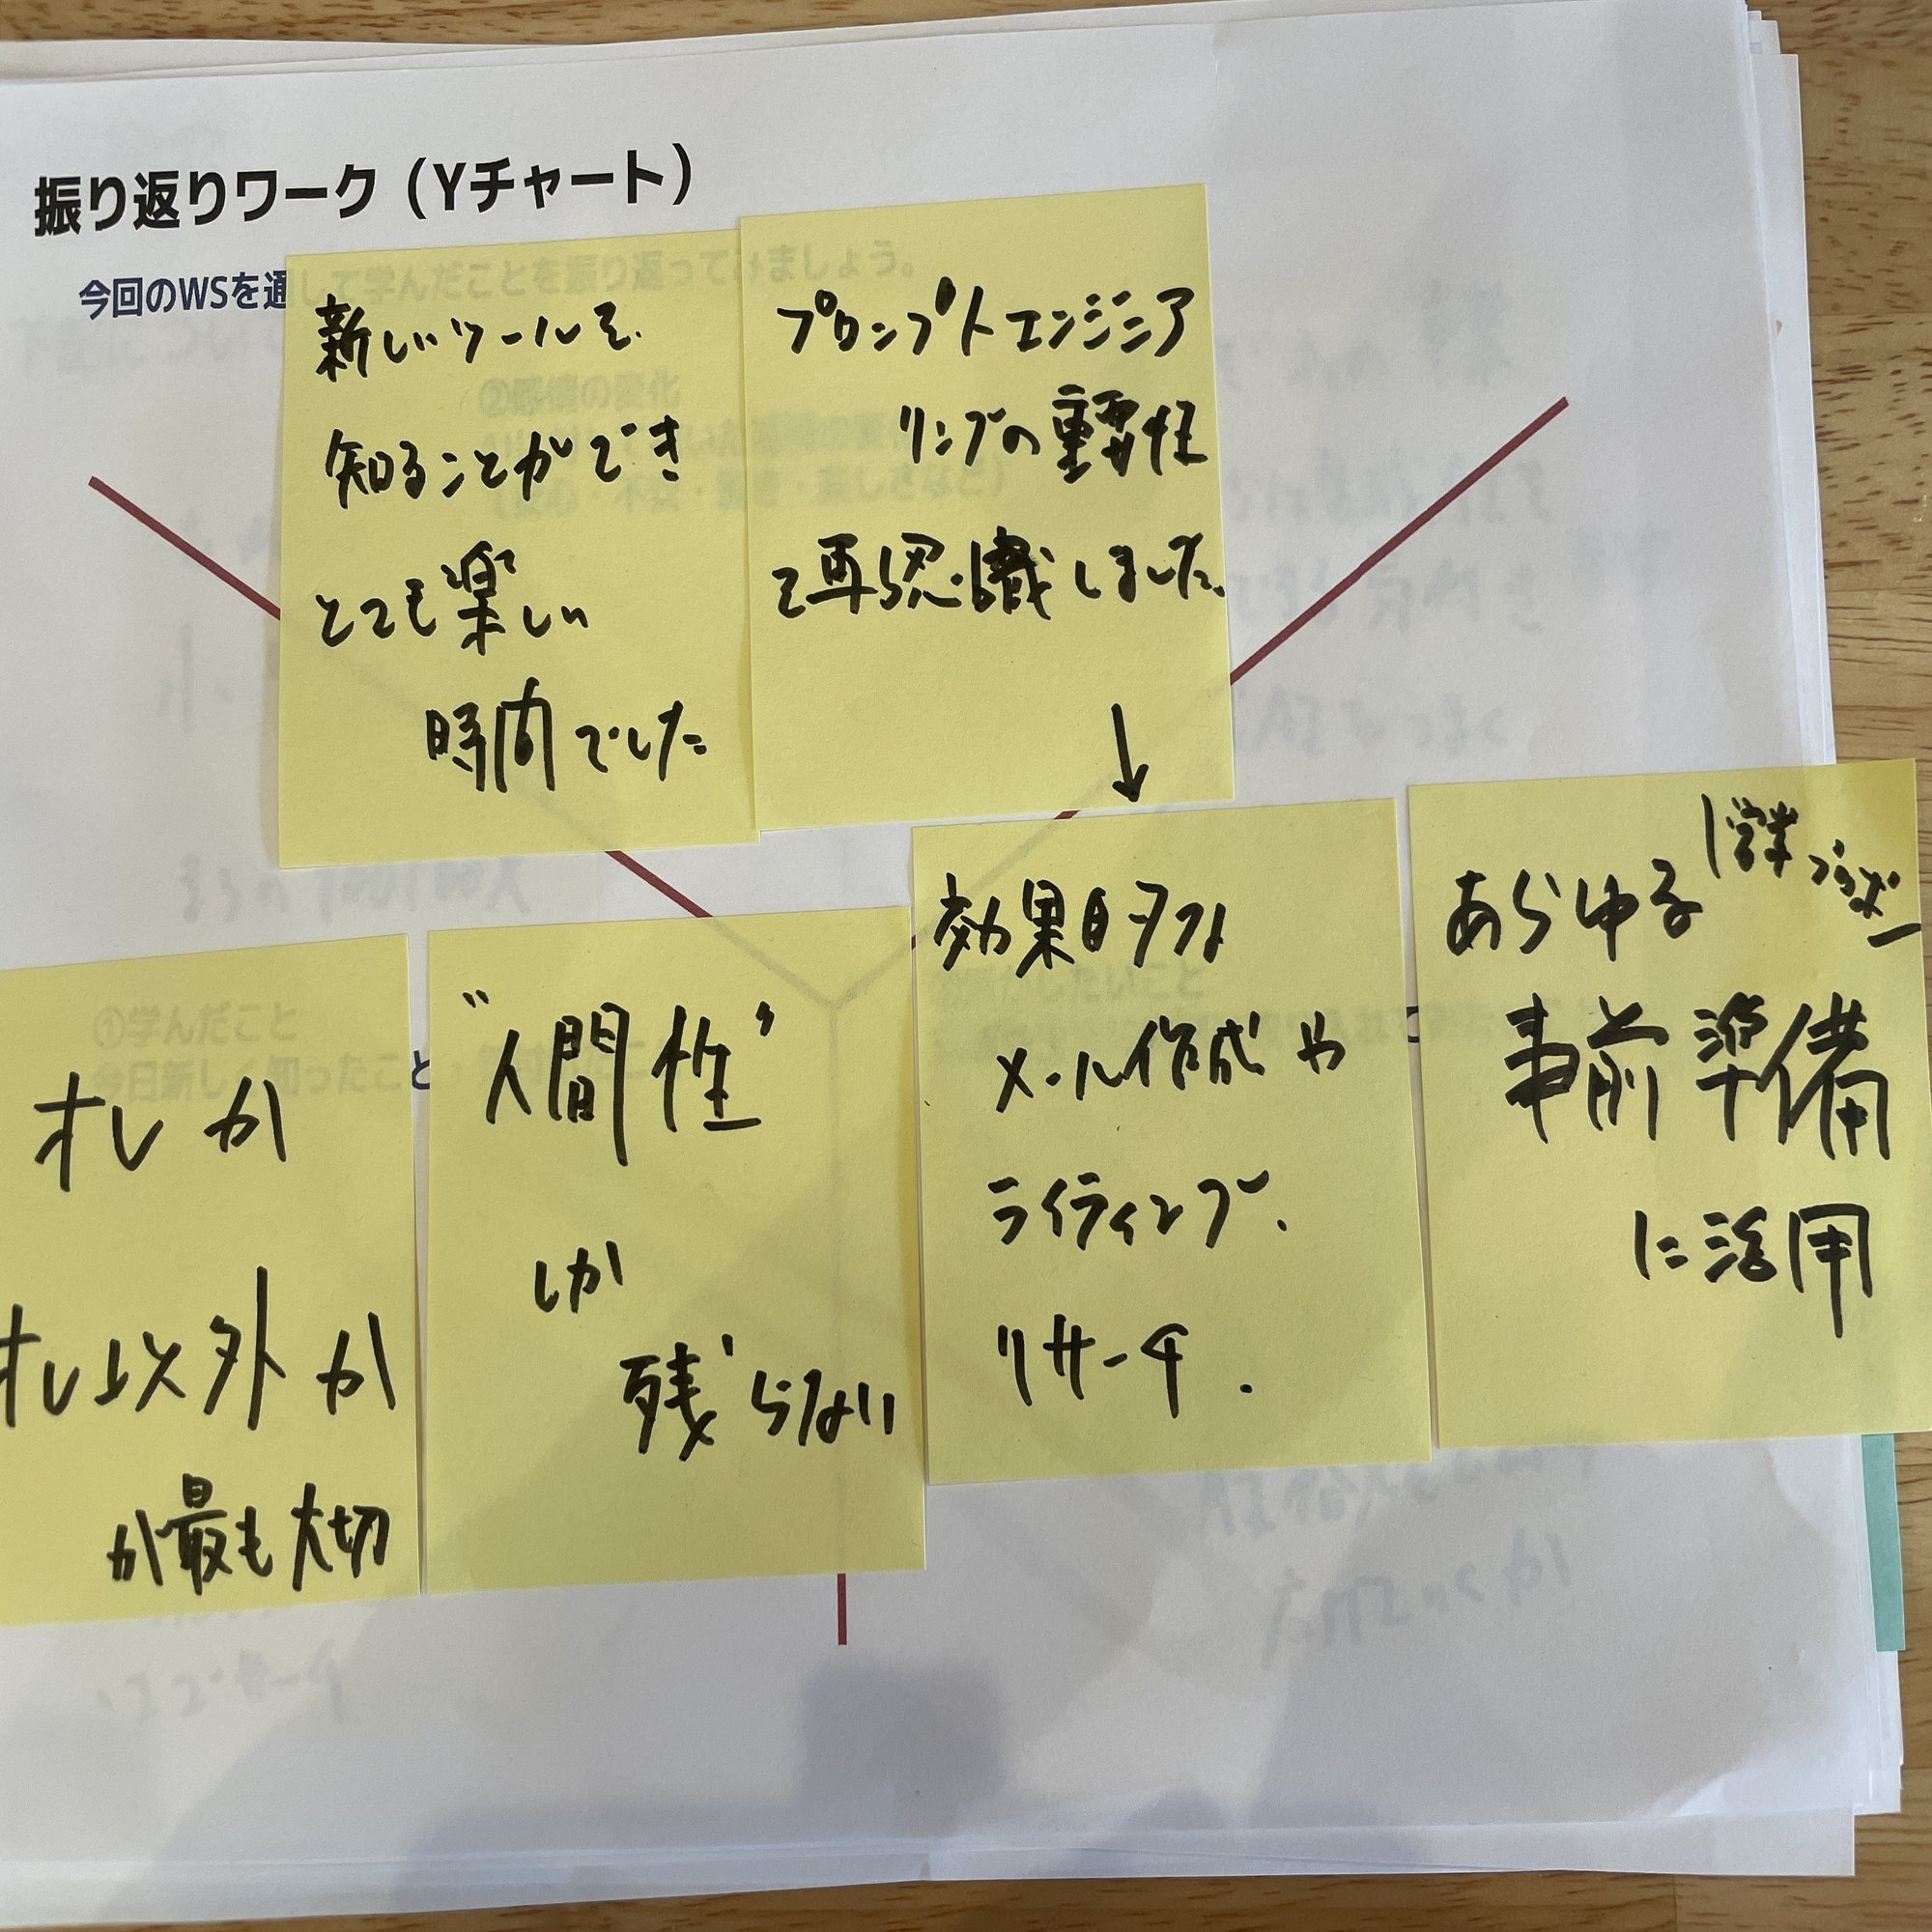 振り返りワーク（Yチャート）
今回のWSを通して学んだことを振り返ってみましょう。
②感情の変化
新しいツールを
知ることができ
とても楽しい
時間でした
プロンプトエンジニア
リングの重要性
を再認識しました。
↓
①学んだこと
今日新しく知ったこと
オレか
オレ以外か
が最も大切
"人間性"
しか
残らない
したいこと
効果的な
メール作成や
ライティング.
リサーチ.
あらゆる
事前準備
に活用